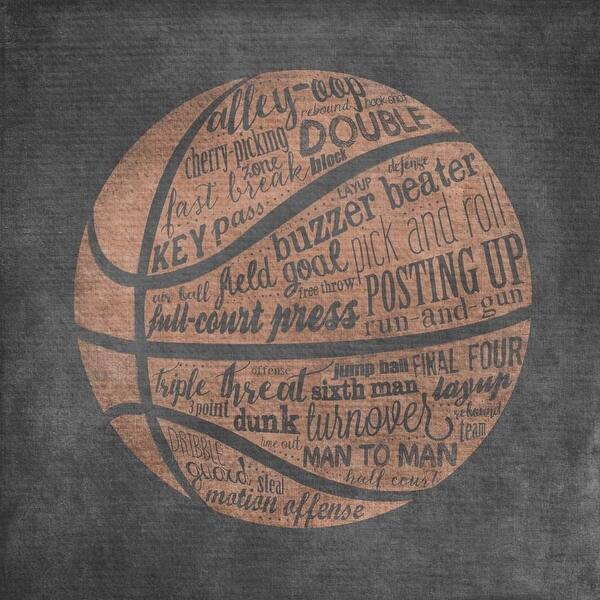 alley-oop
rebound hook shot
DOUBLE
cherry-picking
zone block
fast break
LAYUP defense
KEY pass
buzzer beater
pick and roll
air ball field goal
free throw POSTING UP
full-court press
run-and-gun
offense
jump ball FINAL FOUR
triple threat sixth man layup
3 point
dunk turnover rebound
team
DRIBBLE time out MAN TO MAN
guard steal half court
motion offense